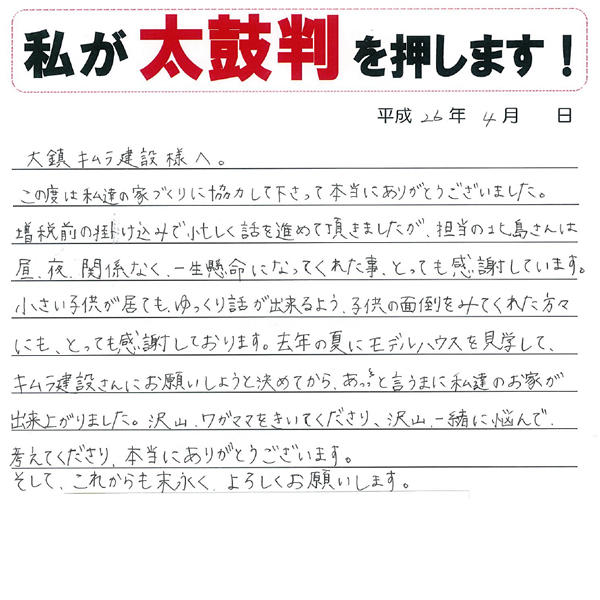 私が太鼓判を押します！
平成26年4月 日
大鎮キムラ建設様へ。
この度は私達の家づくりに協力して下さって本当にありがとうございました。
増税前の掛け込みで忙しく話を進めて頂きましたが、担当の北島さんは
昼、夜、関係なく、一生懸命になってくれた事、とっても感謝しています。
小さい子供が居ても、ゆっくり話が出来るよう、子供の面倒をみてくれた方々
にも、とっても感謝しております。去年の夏にモデルハウスを見学して、
キムラ建設さんにお願いしようと決めてから、あっと言うまに私達のお家が
出来上がりました。沢山、ワガママをきいてくださり、沢山、一緒に悩んで、
考えてくださり、本当にありがとうございます。
そして、これからも末永く、よろしくお願いします。